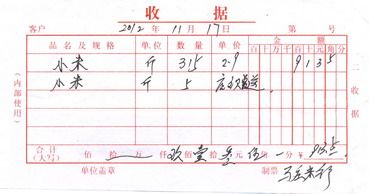 收据
客户 2012 年 11 月 17 日 第 号
品名及规格 单位 数量 单价 金额
百 十 万 千 百 十 元 角 分
小米 斤 315 2.9 9 1 3 5
小米 斤 5
合计(大写) 佰 拾 万 仟 玖 佰 壹 拾 叁 元 伍 角 一 分 ¥ 913.5
单位盖章 制票
(内部使用)
二收据